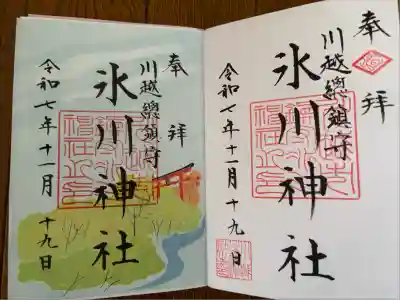 奉拝
川越總鎮守
氷川神社
令和七年十一月十九日
奉拝
川越總鎮守
氷川神社
令和七年十一月十九日